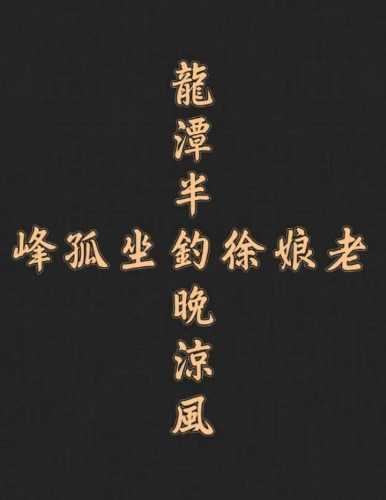 龍潭半釣晚涼風
峰孤坐釣徐娘老